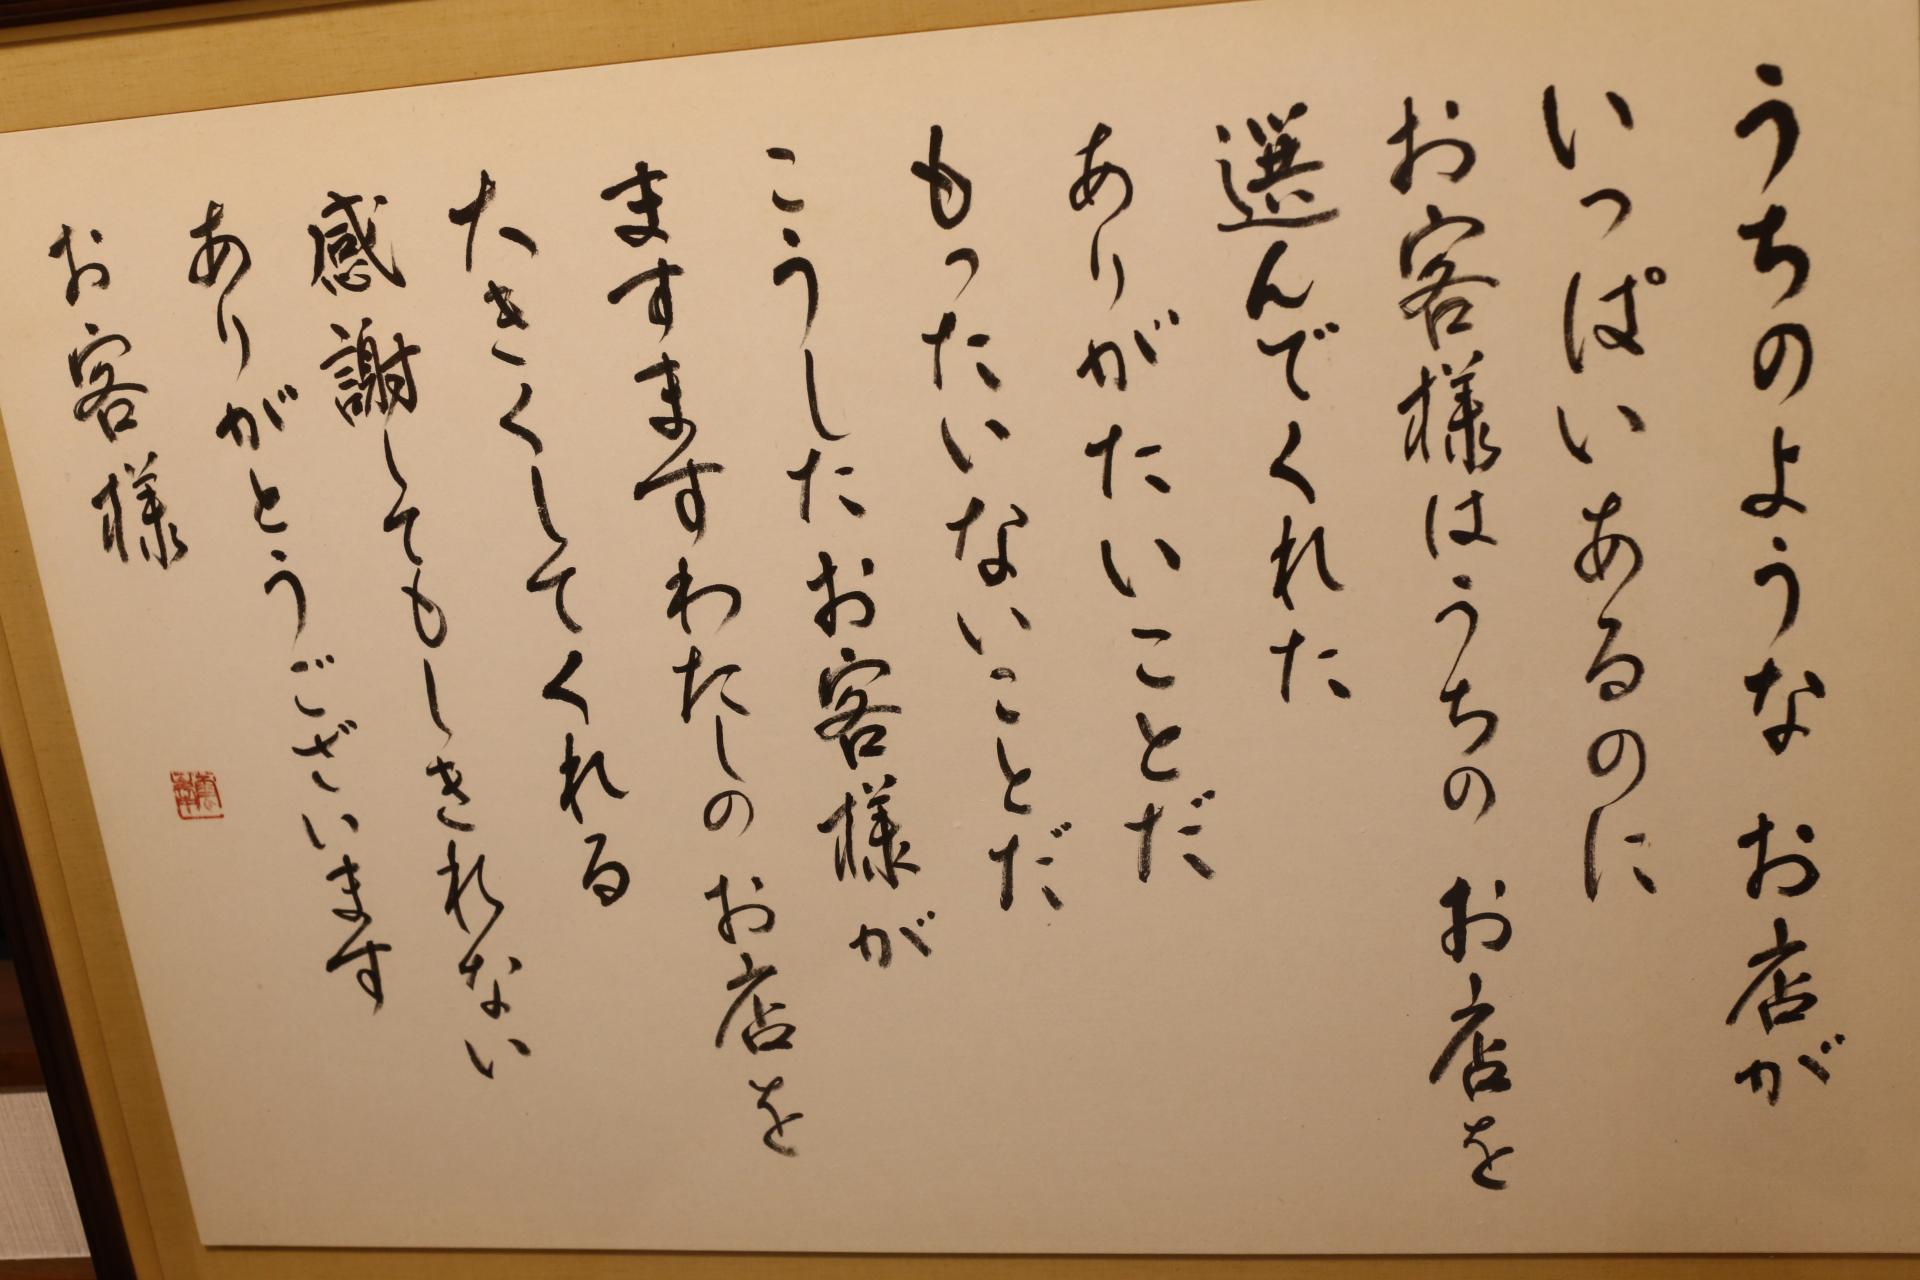 うちのような お店が
いっぱいあるのに
お客様はうちの お店を
選んでくれた
ありがたいことだ
もったいないことだ
こうしたお客様が
ますますわたしの お店を
たきくしてくれる
感謝してもしきれない
ありがとうございます
お客様